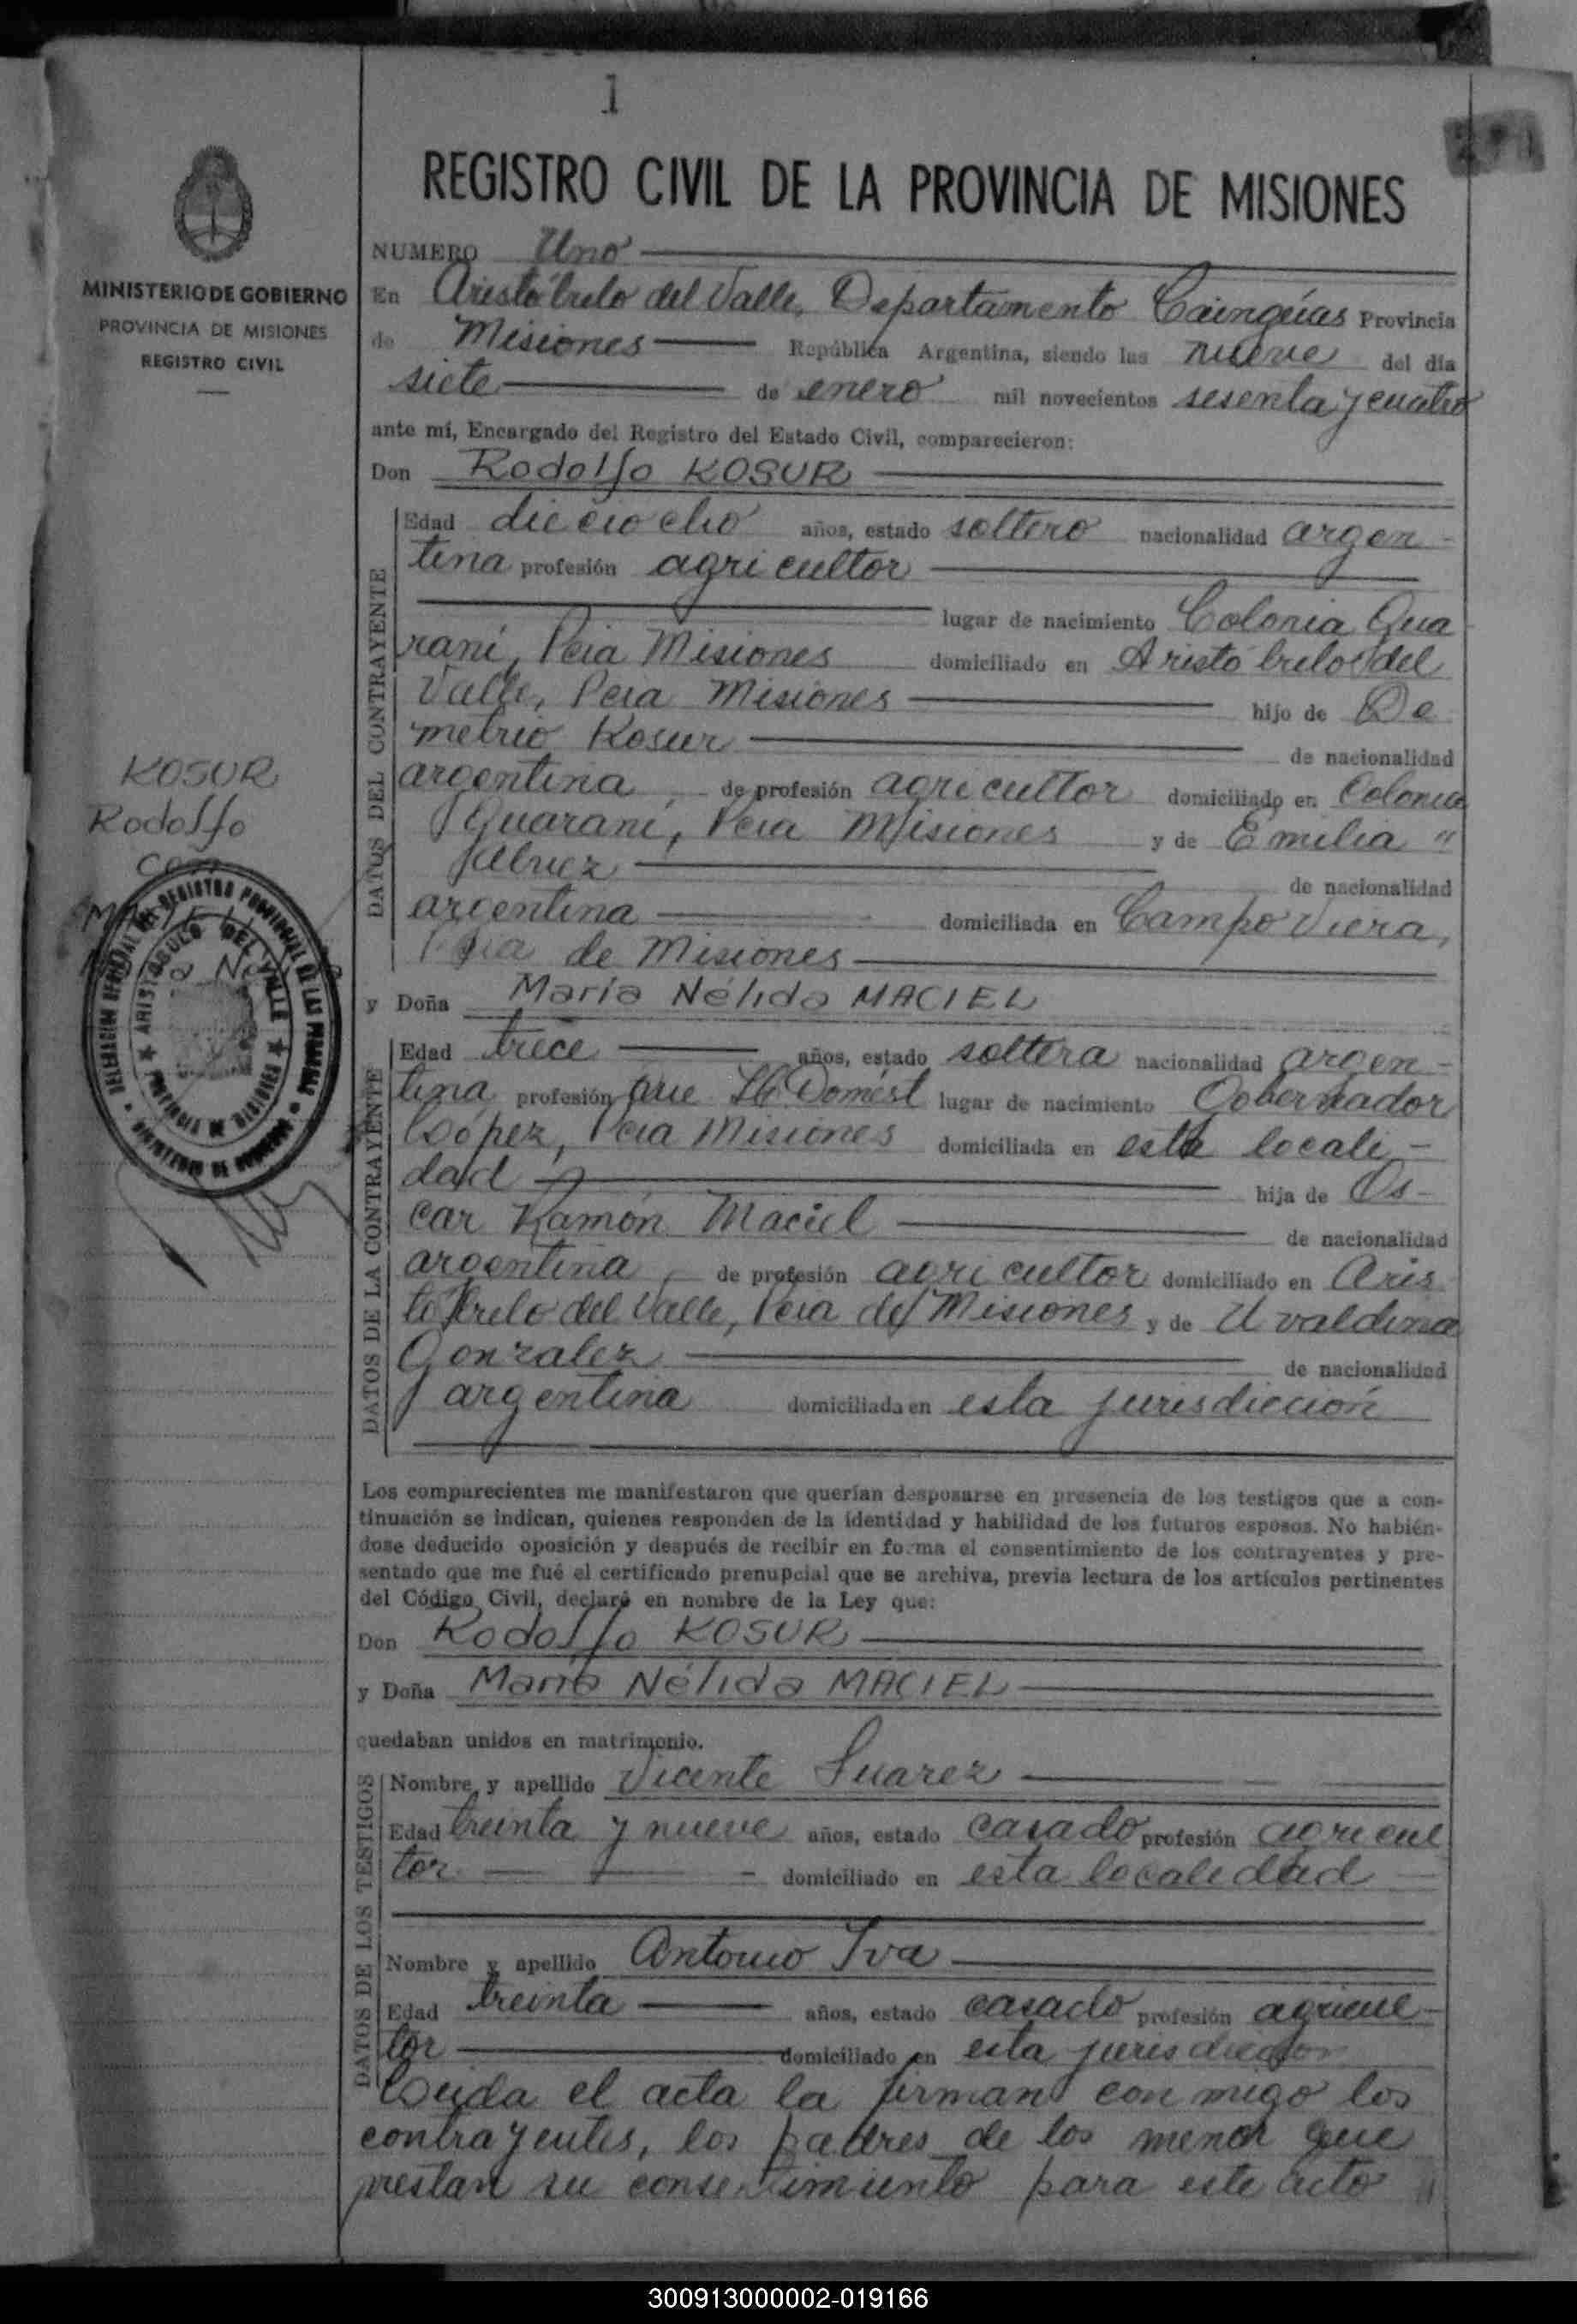 1
REGISTRO CIVIL DE LA PROVINCIA DE MISIONES
MINISTERIO DE GOBIERNO
PROVINCIA DE MISIONES
REGISTRO CIVIL
NUMERO Uno
En Aristóbulo del Valle, Departamento Cainguás Provincia
de Misiones República Argentina, siendo las nueve del día
siete de enero mil novecientos sesenta y cuatro
ante mí, Encargado del Registro del Estado Civil, comparecieron:
Don Rodolfo KOSUR
DATOS DEL CONTRAYENTE
Edad dieciocho años, estado soltero nacionalidad argen-
tina profesión agricultor
lugar de nacimiento Colonia Gua
raní, Pcia Misiones domiciliado en Aristóbulo del
Valle, Pcia Misiones hijo de De
metrio Kosur de nacionalidad
argentina, de profesión agricultor domiciliado en Colonia
Guaraní, Pcia Misiones y de Emilia "
de nacionalidad
argentina domiciliada en Campo Viera,
Pcia de Misiones
KOSUR
Rodolfo
con
DELEGACION DEL REGISTRO PROVINCIAL DE LAS PERSONAS
ARISTOBULO DEL VALLE
PROVINCIA DE MISIONES
MINISTERIO DE GOBIERNO
y Doña María Nélida MACIEL
DATOS DE LA CONTRAYENTE
Edad trece años, estado soltera nacionalidad argen-
tina profesión Domést lugar de nacimiento Gobernador
López, Pcia Misiones domiciliada en esta locali-
dad hija de Os-
car Ramón Maciel de nacionalidad
argentina, de profesión agricultor domiciliado en Aris
tóbulo del Valle, Pcia de Misiones y de Uvaldina
Gonzalez de nacionalidad
argentina domiciliada en esta jurisdicción
Los comparecientes me manifestaron que querían desposarse en presencia de los testigos que a con-
tinuación se indican, quienes responden de la identidad y habilidad de los futuros esposos. No habién-
dose deducido oposición y después de recibir en forma el consentimiento de los contrayentes y pre-
sentado que me fué el certificado prenupcial que se archiva, previa lectura de los artículos pertinentes
del Código Civil, declaré en nombre de la Ley que:
Don Rodolfo KOSUR
y Doña María Nélida MACIEL
quedaban unidos en matrimonio.
DATOS DE LOS TESTIGOS
Nombre y apellido Vicente Suarez
Edad treinta y nueve años, estado casado profesión agricul
tor domiciliado en esta localidad
Nombre y apellido Antonio Iva
Edad treinta años, estado casado profesión agricul-
tor domiciliado en esta jurisdiccion
Leida el acta la firman con migo los
contrayentes, los padres de los menor que
prestan su consentimiento para este acto "
300913000002-019166